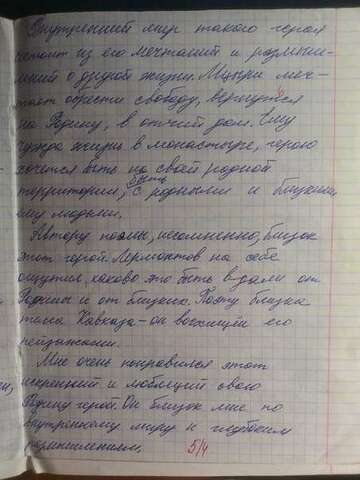 Внутренний мир такого героя
состоит из его мечтаний и размыш-
лений о другой жизни. Мцыри меч-
тает обрести свободу, вернуться
на Родину, в отчий дом. Ему
чужда жизнь в монастыре, герою
хочется быть на своей родной
территории, быть с родными и близкими
ему людьми.
Автору поэмы, несомненно, близок
этот герой. Лермонтов на себе
ощутил, каково это быть вдали от
Родины и от близких. Поэту близка
тема Кавказа - он восхищён его
пейзажами.
Мне очень понравился этот
искренний и любящий свою
Родину герой. Он близок мне по
внутреннему миру и глубоким
размышлениям.
5/4